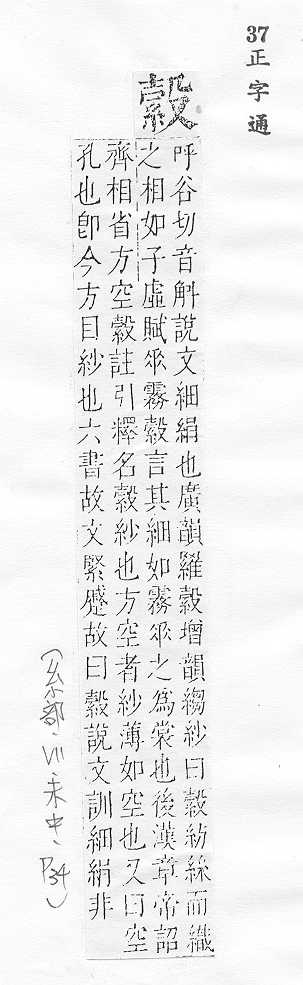 37
正字通
縠
呼谷切音斛說文細絹也廣韻羅縠增韻縐紗曰縠紡絲而織
之相如子虛賦𠂹霧縠言其細如霧𠂹之爲裳也後漢章帝詔
齊相省方空縠註引釋名縠紗也方空者紗薄如空也又曰空
孔也卽今方目紗也六書故文緊蹙故曰縠說文訓細絹非
(糸部、未中、P34)